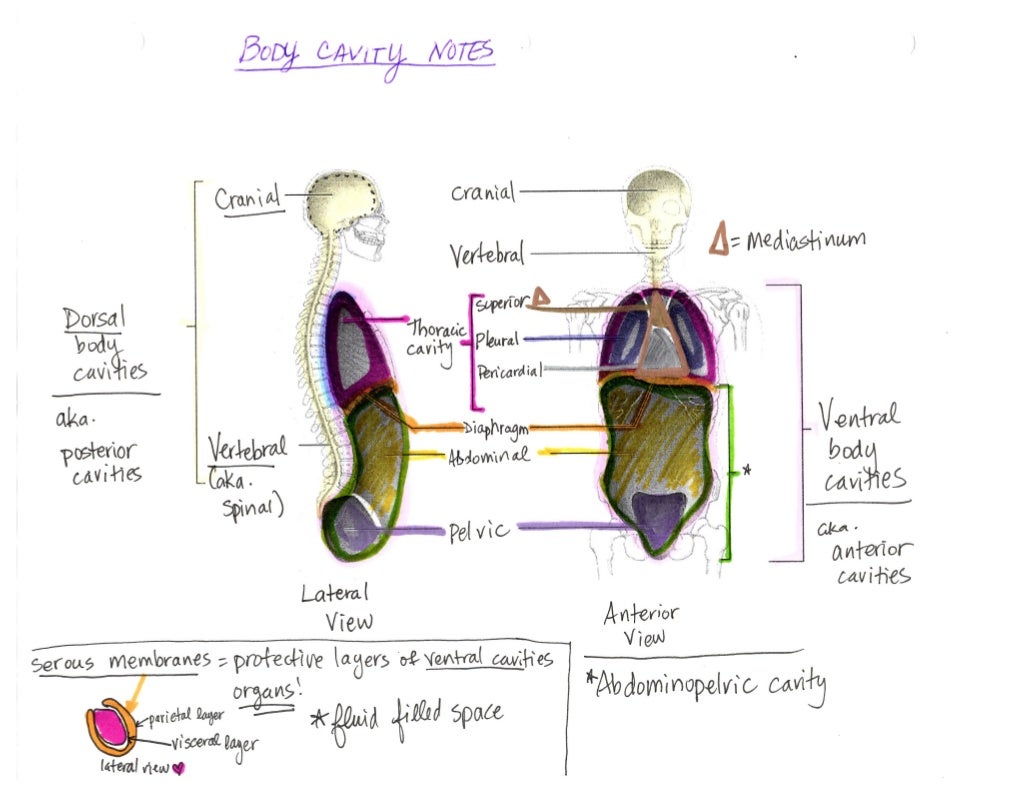 BODY CAVITY NOTES
Cranial
Cranial
Vertebral
Δ = Mediastinum
Dorsal
body
cavities
aka.
posterior
cavities
Thoracic
cavity
Superior Δ
Pleural
Pericardial
Diaphragm
Abdominal
Vertebral
(aka.
spinal)
Pelvic
*
Ventral
body
cavities
aka.
anterior
cavities
Lateral
View
Anterior
View
Serous membranes = protective layers of ventral cavities
organs!
* fluid filled space
parietal layer
visceral layer
lateral view ♥
*Abdominopelvic cavity